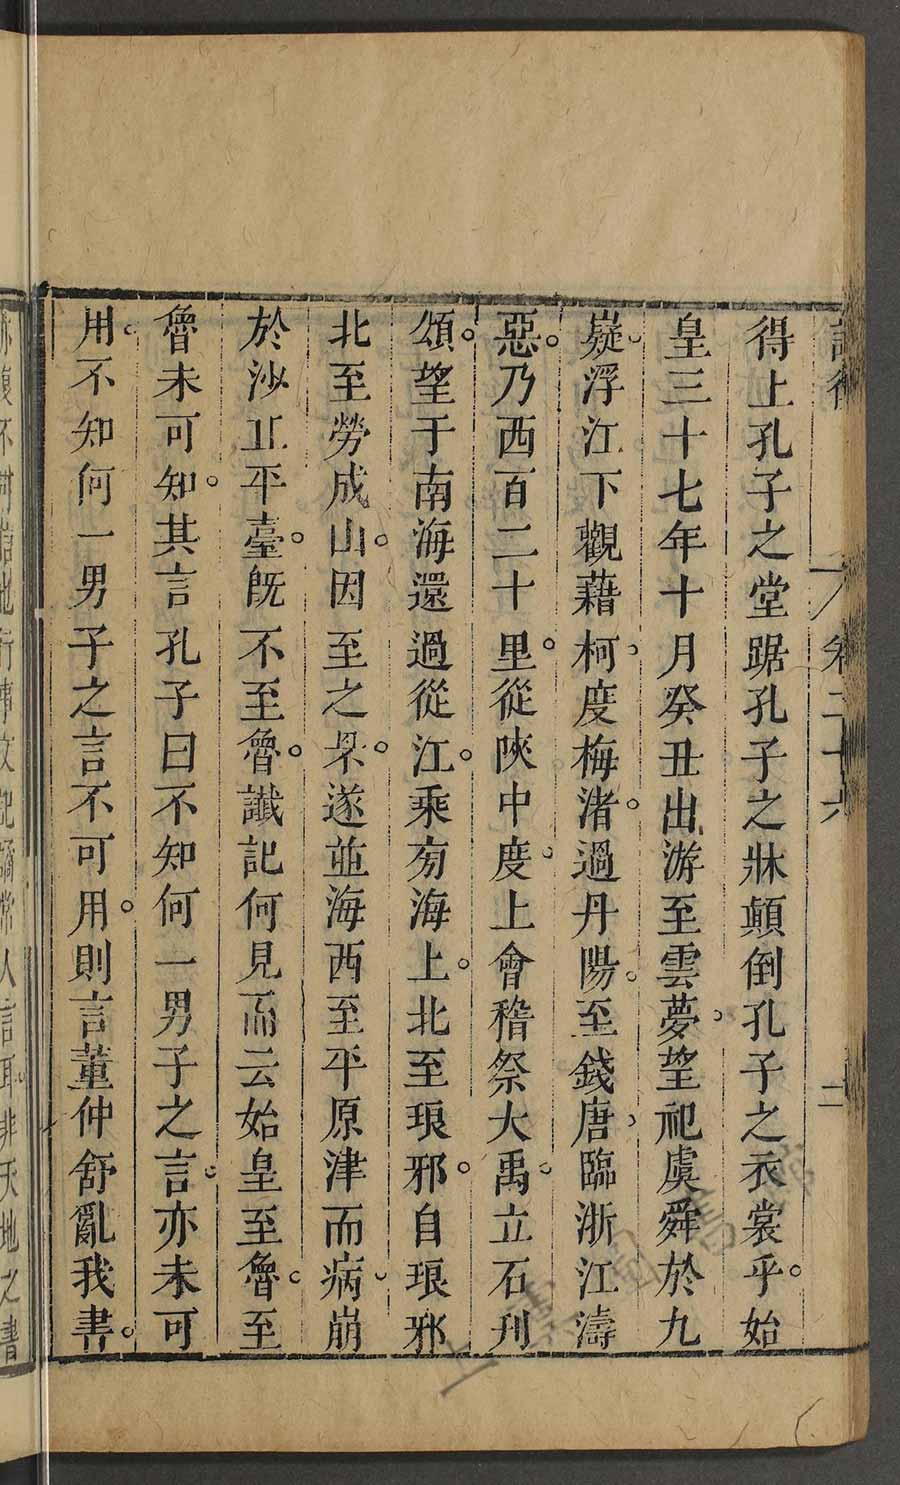 卷二十六 二
得上孔子之堂踞孔子之牀顛倒孔子之衣裳乎。始
皇三十七年十月癸丑出游至雲夢望祀虞舜於九
嶷浮江下觀藉柯度梅渚。過丹陽。至錢唐臨浙江濤
惡。乃西百二十里。從陝中度。上會稽祭大禹立石刋
頌望于南海還過從江。乘旁海上。北至琅邪。自琅邪
北至勞成山。因至之罘。遂並海西至平原津而病崩
於沙丘平臺。旣不至魯。讖記何見而云始皇至魯。至
魯未可知。其言孔子曰不知何一男子之言。亦未可
用。不知何一男子之言不可用。則言董仲舒亂我書。